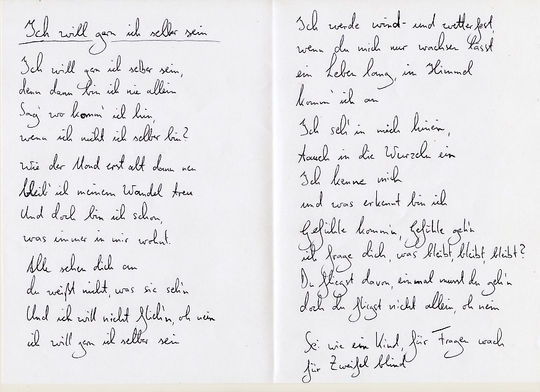 Ich will gern ich selber sein
Ich will gern ich selber sein,
denn dann bin ich nie allein
Sag' wo komm' ich hin,
wenn ich nicht ich selber bin?
Wie der Mond erst alt dann neu
bleib' ich meinem Wandel treu
Und doch bin ich schon,
was immer in mir wohnt.
Alle sehen dich an
du weißt nicht, was sie seh'n
Und ich will nicht flieh'n, oh nein
ich will gern ich selber sein
Ich werde wind- und wetterfest,
wenn du mich nur wachsen lässt
ein Leben lang, im Himmel
komm' ich an
Ich seh' in mich hinein,
tauch in die Wurzeln ein
Ich kenne mich
und was erkannt bin ich
Gefühle kommen, Gefühle geh'n
ich frage dich, was bleibt, bleibt, bleibt?
Du fliegst davon, einmal musst du geh'n
doch du fliegst nicht allein, oh nein
Sei wie ein Kind, für Fragen wach
für Zweifel blind